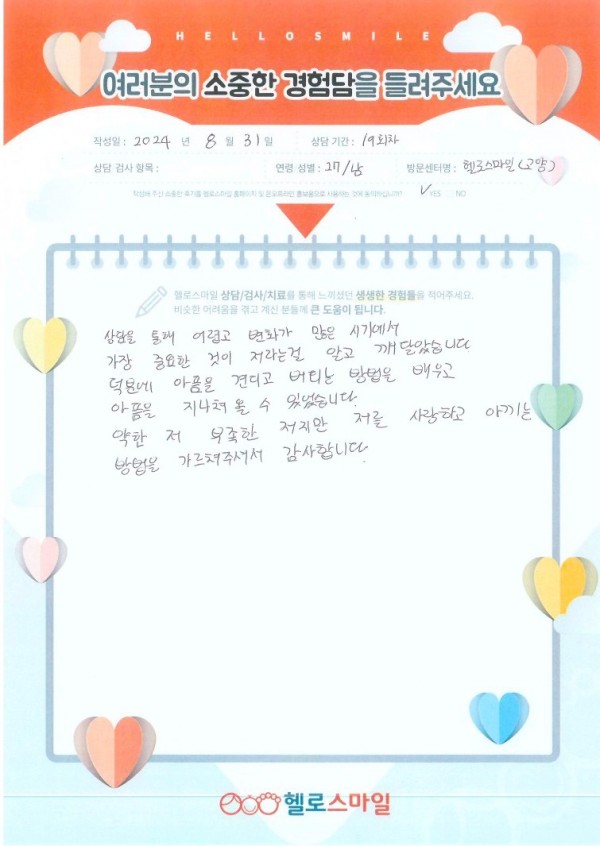 HELLOSMILE
여러분의 소중한 경험담을 들려주세요
작성일 : 2024 년 8 월 31 일 상담 기간 : 19회차
상담 검사 항목 : 연령 성별 : 27/남 방문센터명 : 헬로스마일(고양)
작성해 주신 소중한 후기를 헬로스마일 홈페이지 및 온오프라인 홍보용으로 사용하는 것에 동의하십니까? ✓YES NO
헬로스마일 상담/검사/치료를 통해 느끼셨던 생생한 경험들을 적어주세요.
비슷한 어려움을 겪고 계신 분들께 큰 도움이 됩니다.
상담을 통해 어렵고 변화가 많은 시기에서
가장 중요한 것이 저라는걸 알고 깨달았습니다
덕분에 아픔을 견디고 버티는 방법을 배우고
아픔을 지나쳐 올 수 있었습니다.
약한 저 부족한 저지만 저를 사랑하고 아끼는
방법을 가르쳐주셔서 감사합니다.
헬로스마일